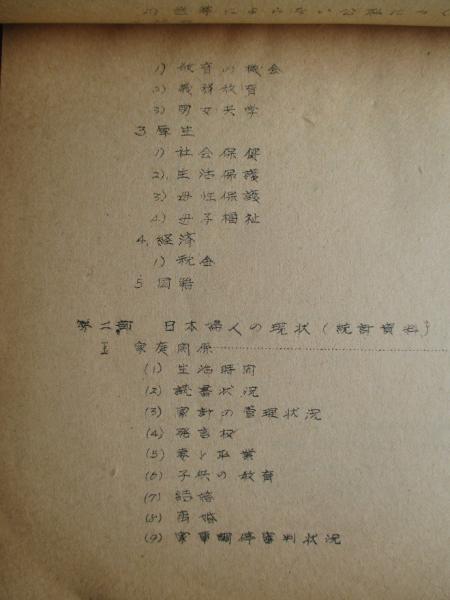 1) 教育の機会
2) 義務教育
3) 男女共学
3 厚生
1) 社会保健
2) 生活保護
3) 母性保護
4) 母子福祉
4. 経済
1) 税金
5 国籍
第二部 日本婦人の現状(統計資料)
I 家庭関係
(1) 生活時間
(2) 読書状況
(3) 家計の管理状況
(4) 発言权
(5) 妻と职業
(6) 子供の教育
(7) 結婚
(8) 离婚
(9) 家事調停審判状況